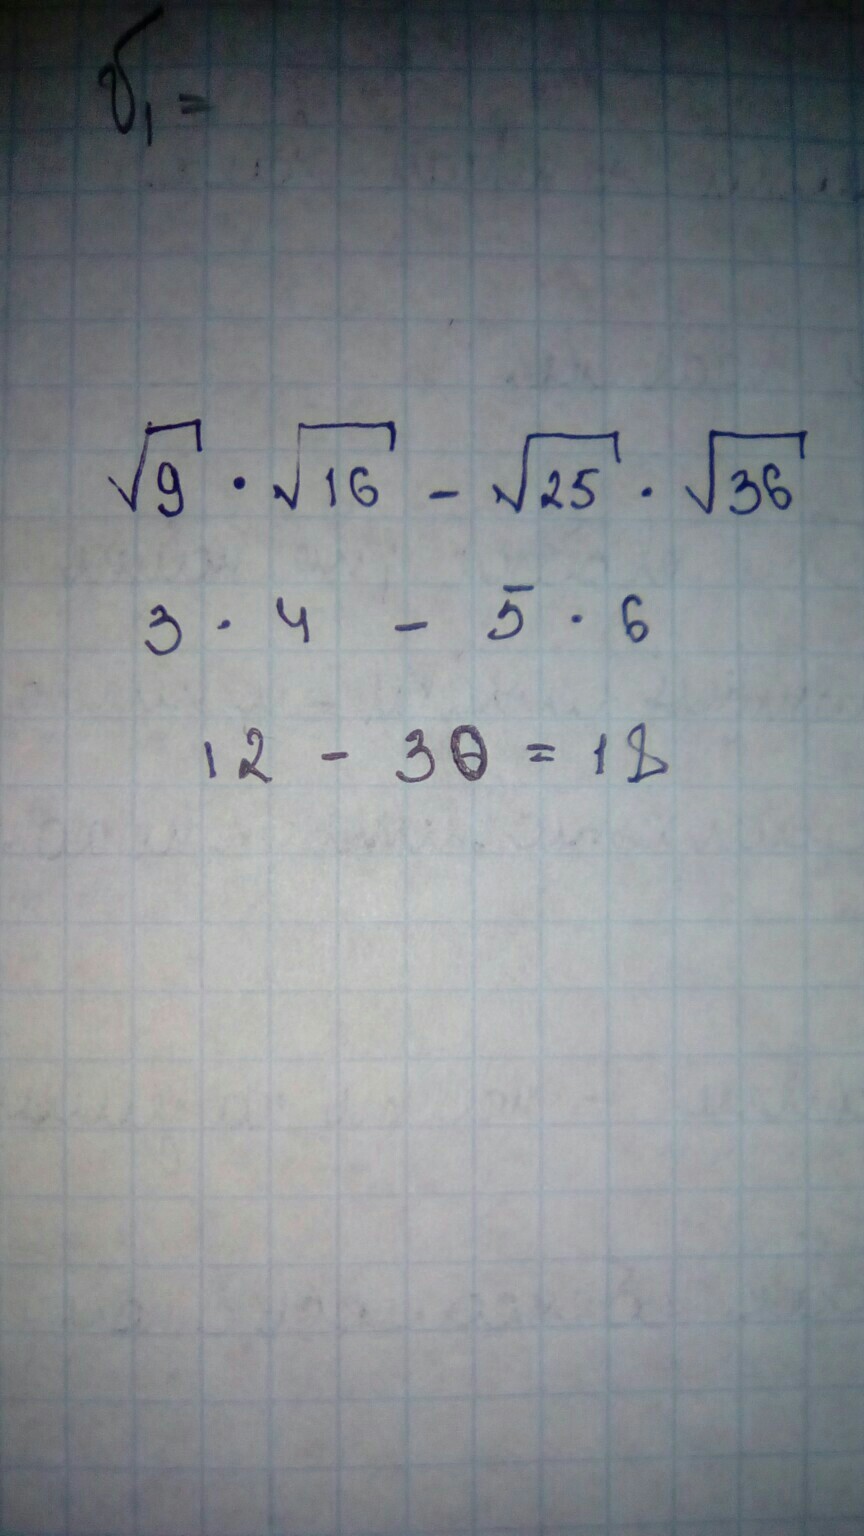 √1 =
√9 · √16 - √25 · √36
3 · 4 - 5 · 6
12 - 30 = 18